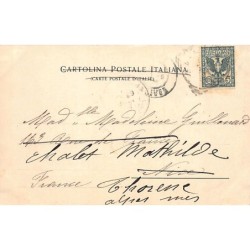 CARTOLINA POSTALE ITALIANA
(CARTE POSTALE D'ITALIE)
Mad lle Madeleine Guilhonard
Chalet Mathilde
Nice
France Thorenc
alpes mes